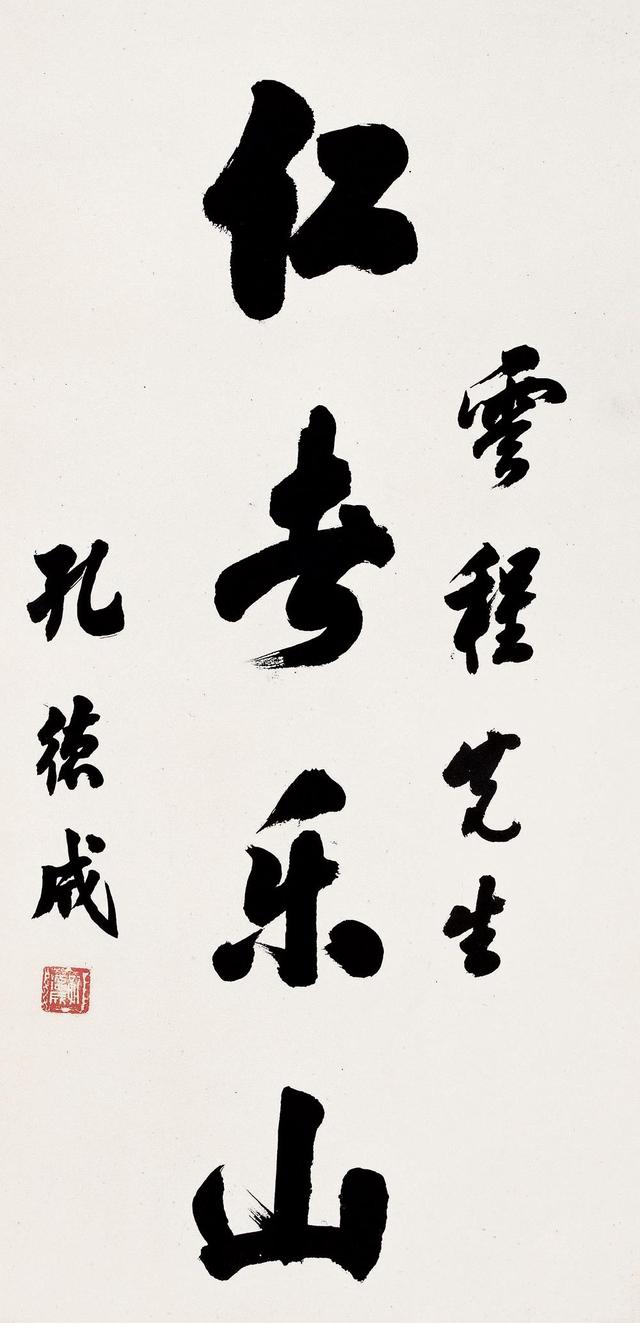 雲程先生
仁者乐山
孔德成